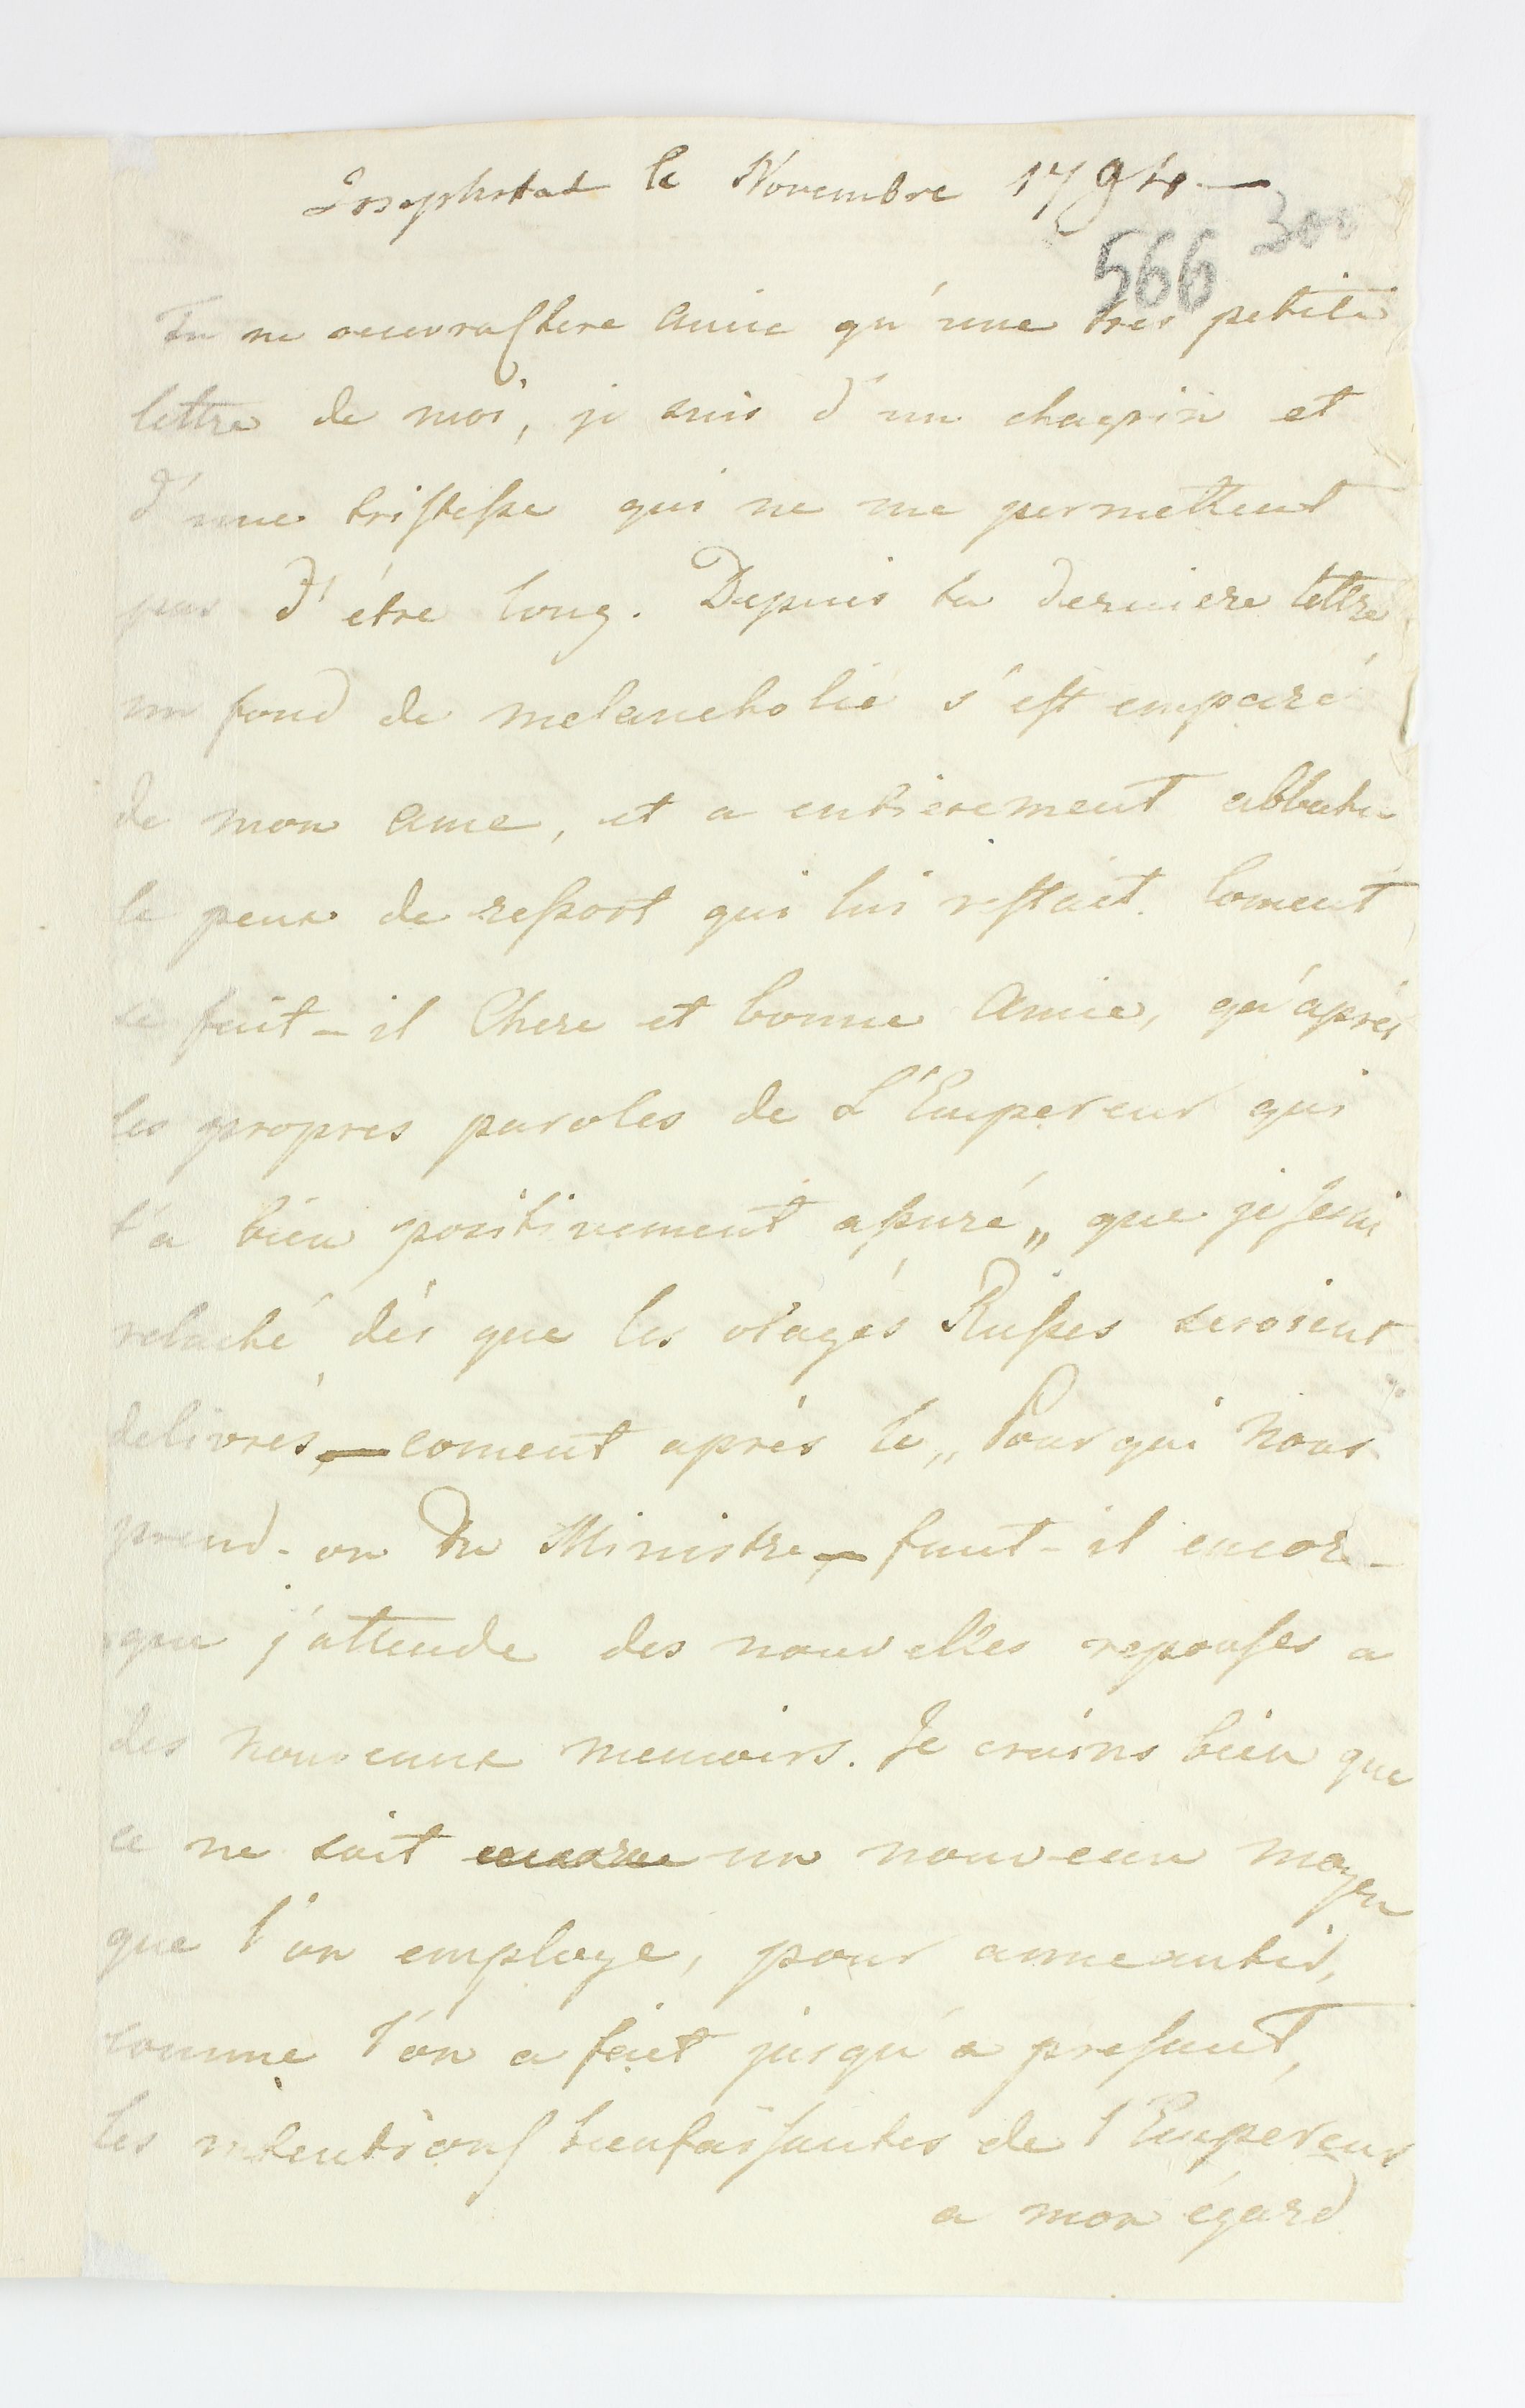 Josephstat le Novembre 1794 —
300
566
Tu ne recevras chere amie qu'une tres petite
lettre de moi, je suis d'un chagrin et
d'une tristesse qui ne me permettent
pas d'étre long. Depuis ta derniere lettre
un fond de melancholie s'est emparé
de mon ame, et a entierement abbatu
le peux de ressort qui lui restait. Coment
se fait-il Chere et bonne Amie, qu'aprés
les propres paroles de L'Empereur qui
t'a bien positivement assuré „ que je serai
relaché dés que les otages Russes seroient
delivrés, — coment aprés le „ Pour qui nous
prend-on du Ministre, — faut-il encore
que j'attende des nouvelles reponses a
des nouveaux memoirs. Je crains bien que
ce ne soit encore un nouveau moyen
que l'on employe, pour anneantir,
comme l'on a fait jusqu'a present,
les intentions bienfaisantes de l'Empereur
a mon égard